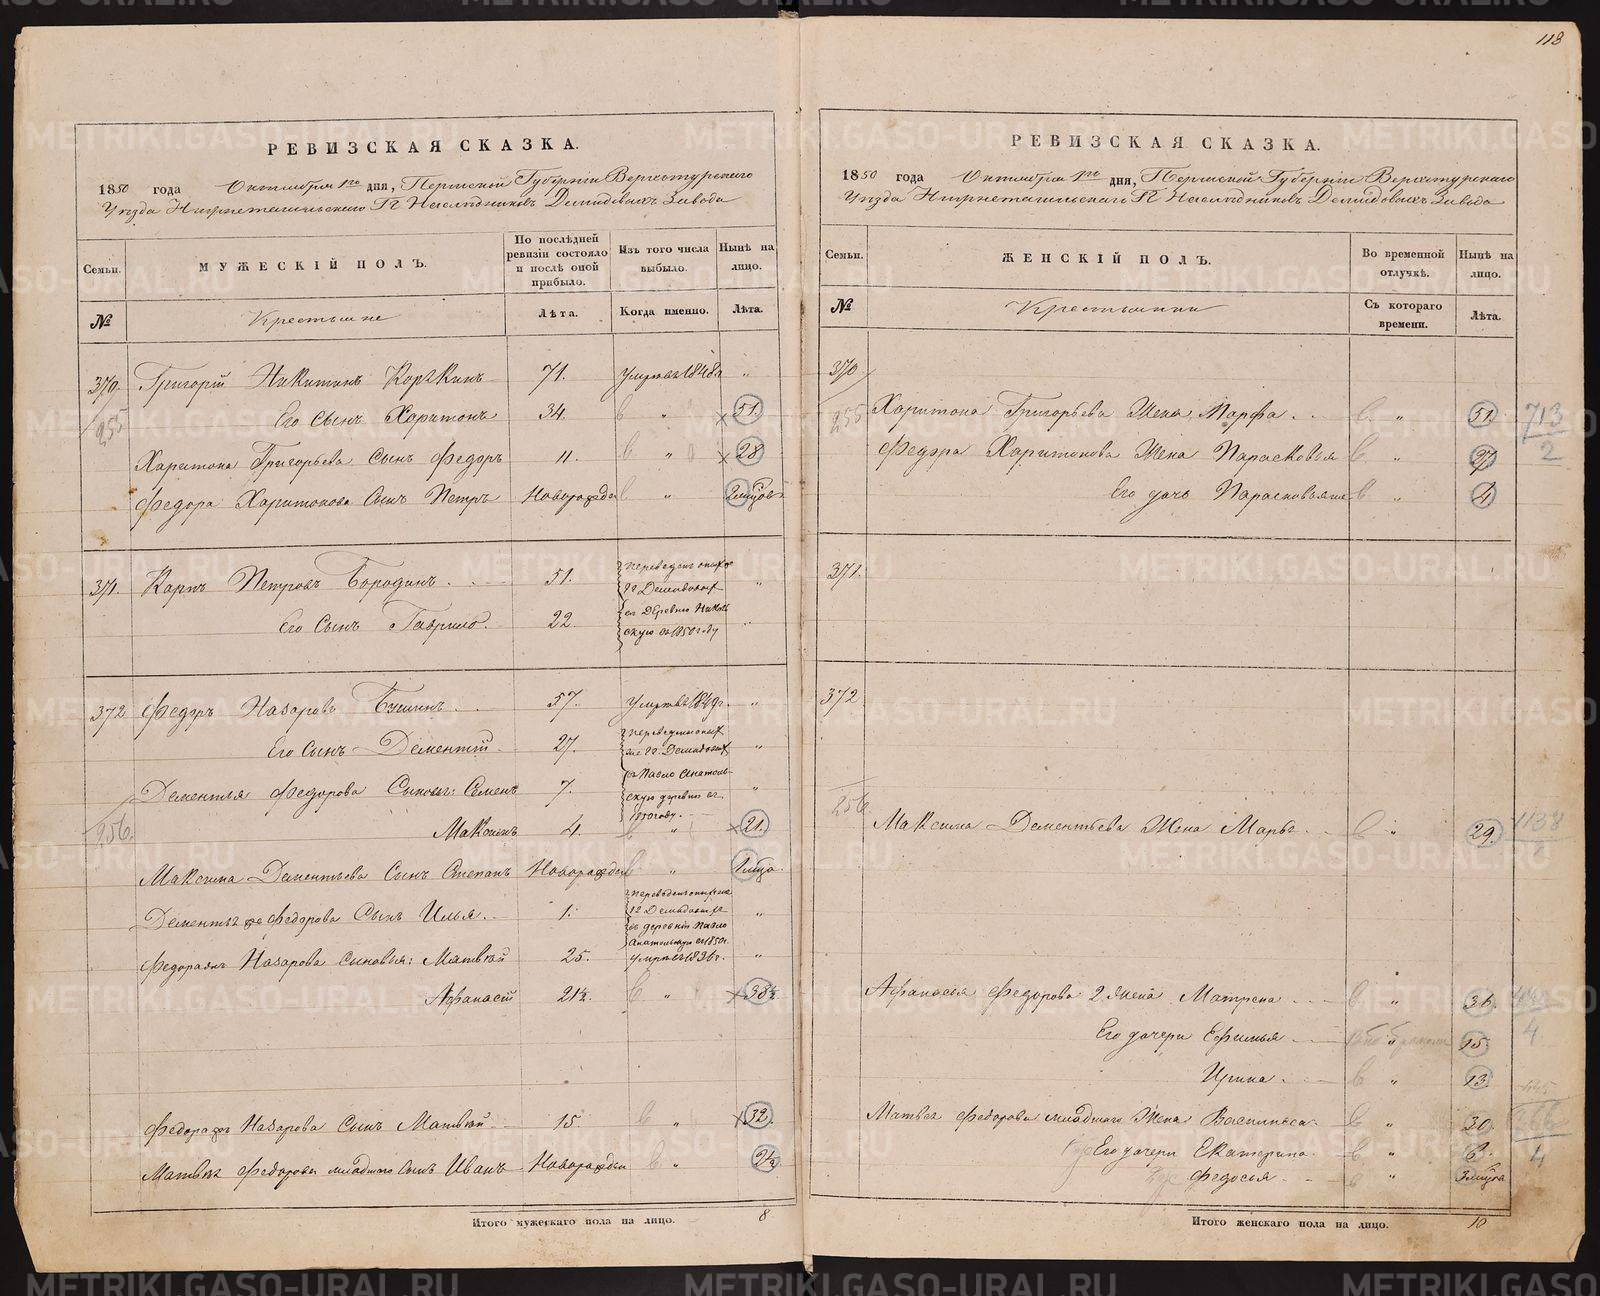 118
РЕВИЗСКАЯ СКАЗКА.
1850 года Октября 1го дня, Пермской Губерніи Верхотурскаго
Уѣзда Нижнетагильскаго Гг. Наслѣдниковъ Демидовыхъ Завода
Семьи.
МУЖЕСКІЙ ПОЛЪ.
По послѣдней ревизіи состояло и послѣ оной прибыло.
Изъ того числа выбыло.
Нынѣ на лицо.
№
Крестьяне
Лѣта.
Когда именно.
Лѣта.
370. Григорій Никитинъ Коркинъ 71. Умретъ 1848г. "
255 Его Сынъ Харитонъ 34. " 51.
Харитона Григорьева Сынъ Федоръ 11. " 28
Федора Харитонова Сынъ Петръ Новорожден "
371. Карпъ Петровъ Бородинъ. 51. "
Его Сынъ Гаврило. 22. "
Переведены
Гг Демидовых
въ Деревню
скую въ 1850 году
372 Федоръ Назаровъ 57. Умретъ 1849г. "
Его Сынъ Дементій 27. "
Дементья Федорова Сыновья: Семенъ 7. "
Переведены
же Гг. Демидовых
скую деревню въ
1850 году.
256. Максимъ 4. " 21.
Максима Дементьева Сынъ Степанъ Новорожден "
Дементья Федорова Сынъ Илья. 1. "
Гг Демидовых
въ деревню
въ 1850г.
Федора Назарова Сыновья: Матвѣй 25. умретъ 1836г. "
Афанасій 21½. " 38½.
Федора Назарова Сынъ Матвѣй 15. " 32.
Матвея Федорова младшаго сынъ Иванъ Новорожден " 2½
Итого мужескаго пола на лицо. 8
РЕВИЗСКАЯ СКАЗКА.
1850 года Октября 1го дня, Пермской Губерніи Верхотурскаго
Уѣзда Нижнетагильскаго Гг Наслѣдниковъ Демидовыхъ Завода
Семьи.
ЖЕНСКІЙ ПОЛЪ.
Во временной отлучкѣ.
Нынѣ на лицо.
№
Крестьянки
Съ котораго времени.
Лѣта.
370
255 Харитона Григорьева Жена Марфа. " 51. 713
Федора Харитонова Жена Парасковья " 27 2
Его дочь Парасковья " 4
371.
372
256. Максима Дементьева Жена Марья. " 29. 1138
Афанасья Федорова 2 жена Матрена " 36.
Его дочери Ефимья " 15. 4
Ирина. " 13.
Матвея Федорова младшаго Жена Василиса " 30.
Его дочери Екатерина " 4
Федосья. "
Итого женскаго пола на лицо. 10
METRIKI.GASO-URAL.RU